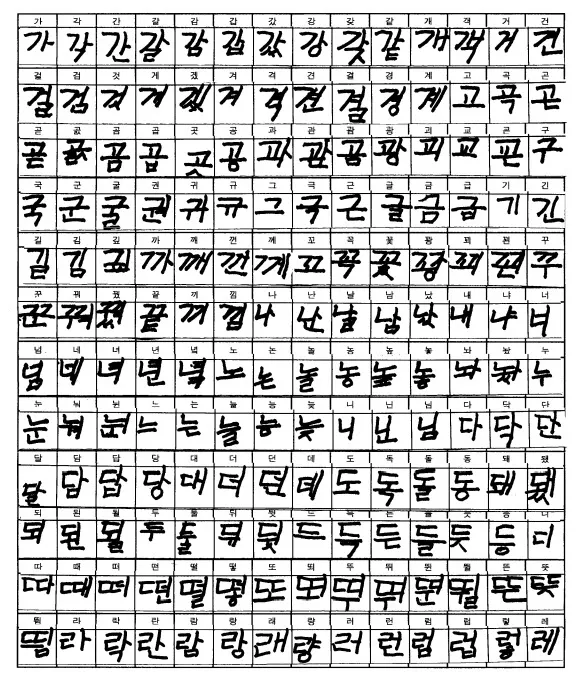 가 각 간 갈 감 갑 값 강 갖 같 개 객 거 건
가 각 간 갈 감 갑 값 강 갖 같 개 객 거 건
걸 검 것 게 겠 겨 격 견 결 경 계 고 곡 곤
걸 검 것 게 겠 겨 격 견 결 경 계 고 곡 곤
곧 곰 곱 곳 공 과 관 광 괴 교 구
곧 곰 곱 곳 공 과 관 광 괴 교 구
국 군 굴 권 귀 규 그 극 근 글 금 급 기 긴
국 군 굴 권 귀 규 그 극 근 글 금 급 기 긴
길 김 깊 까 깨 껀 께 꼬 꼭 꽃 꽝 꾀 꾸
길 김 깊 까 깨 껀 께 꼬 꼭 꽃 꽝 꾀 꾸
꾼 꿔 꿨 끝 끼 낌 나 난 날 남 났 내 냐 너
꾼 꿔 꿨 끝 끼 낌 나 난 날 남 났 내 냐 너
넘 네 녀 년 녘 노 논 놀 농 높 놓 놔 놨 누
넘 네 녀 년 녘 노 논 놀 농 높 놓 놔 놨 누
눈 눠 느 는 늘 능 늦 니 닌 님 다 닥 단
눈 눠 느 는 늘 능 늦 니 닌 님 다 닥 단
달 답 답 당 대 더 던 데 도 독 돌 동 돼 됐
달 답 답 당 대 더 던 데 도 독 돌 동 돼 됐
되 된 될 두 둘 뒤 뒷 드 득 든 들 듯 등 디
되 된 될 두 둘 뒤 뒷 드 득 든 들 듯 등 디
따 때 떠 떤 떨 떻 또 뚜 뛰 뛴 뛸 뜬 뜻
따 때 떠 떤 떨 떻 또 뚜 뛰 뛴 뛸 뜬 뜻
띔 라 락 란 람 랑 래 량 러 런 럼 럽 렇 레
띔 라 락 란 람 랑 래 량 러 런 럼 럽 렇 레